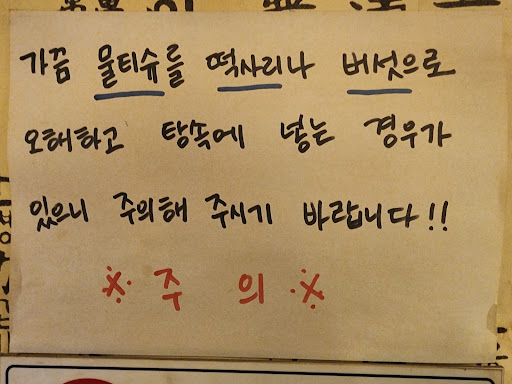 가끔 물티슈를 떡사리나 버섯으로
오해하고 탕속에 넣는 경우가
있으니 주의해 주시기 바랍니다!!
※ 주 의 ※